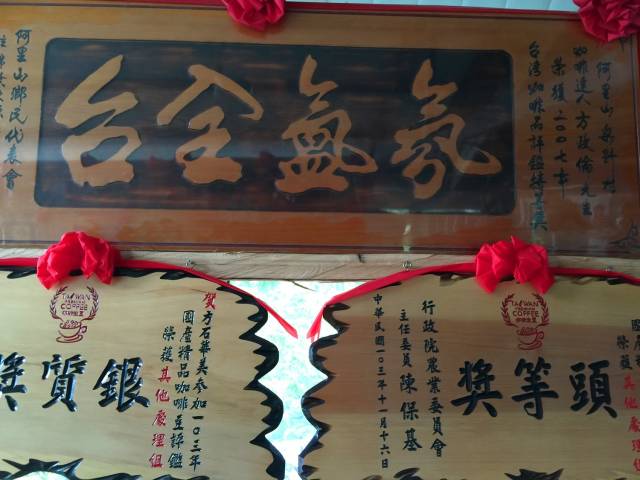 阿里山樂野村
咖啡達人方政倫先生
榮獲2007年
台灣咖啡品評鑑特等獎
氛氳全台
阿里山鄉民代表會
TAIWAN
COFFEE
頭等獎
行政院農業委員會
主任委員陳保基
中華民國一０三年十一月十六日
TAIWAN
COFFEE
賀方石華美參加一０三年
國產精品咖啡豆評鑑
榮獲其他處理組
銀質獎